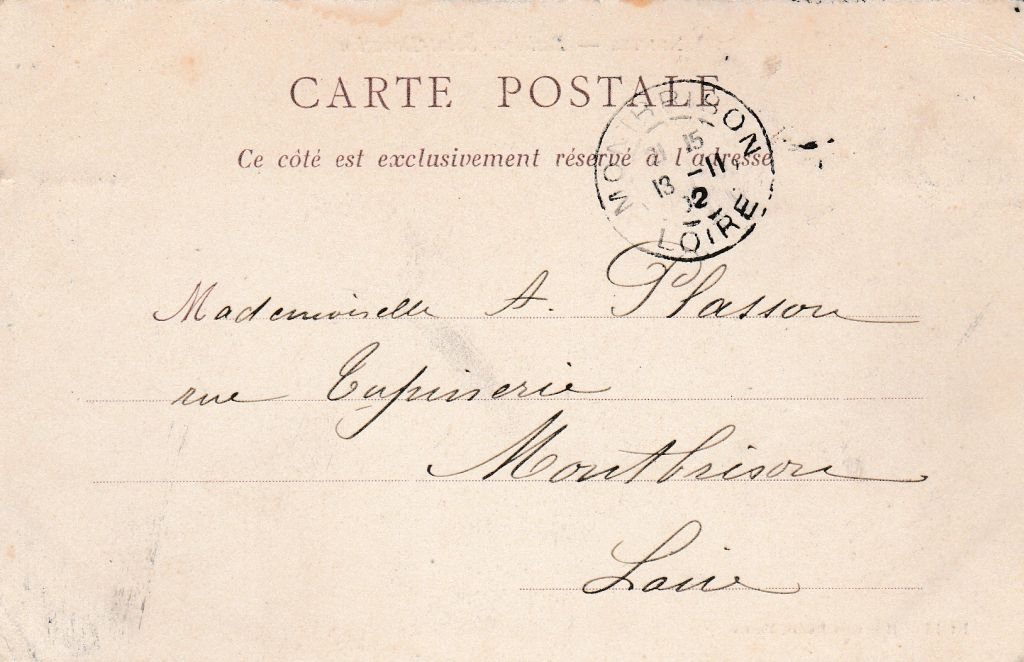 CARTE POSTALE
Ce côté est exclusivement réservé à l'adresse
MONTBRISON
15
13 -11
2
LOIRE
Mademoiselle A. Plasson
rue Tupinerie
Montbrison
Loire